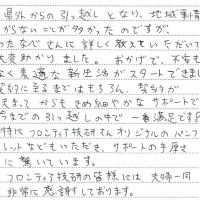 県外からの引っ越しとなり、地域事情
からないことが多かったのですが、
たなべさんに詳しく教えていただいて
大変助かりました。おかげで、不安も
よく素適な新生活がスタートできまし
契約に至るまではもちろん、契約が
決まってからもきめ細やかなサポートで
今までの引っ越しの中で一番満足です!
特にフロンティア技研さんオリジナルのパンフ
レットなどもいただき、サポートの手厚さ
に驚いています。
フロンティア技研の皆様には夫婦一同
非常に感謝しております。